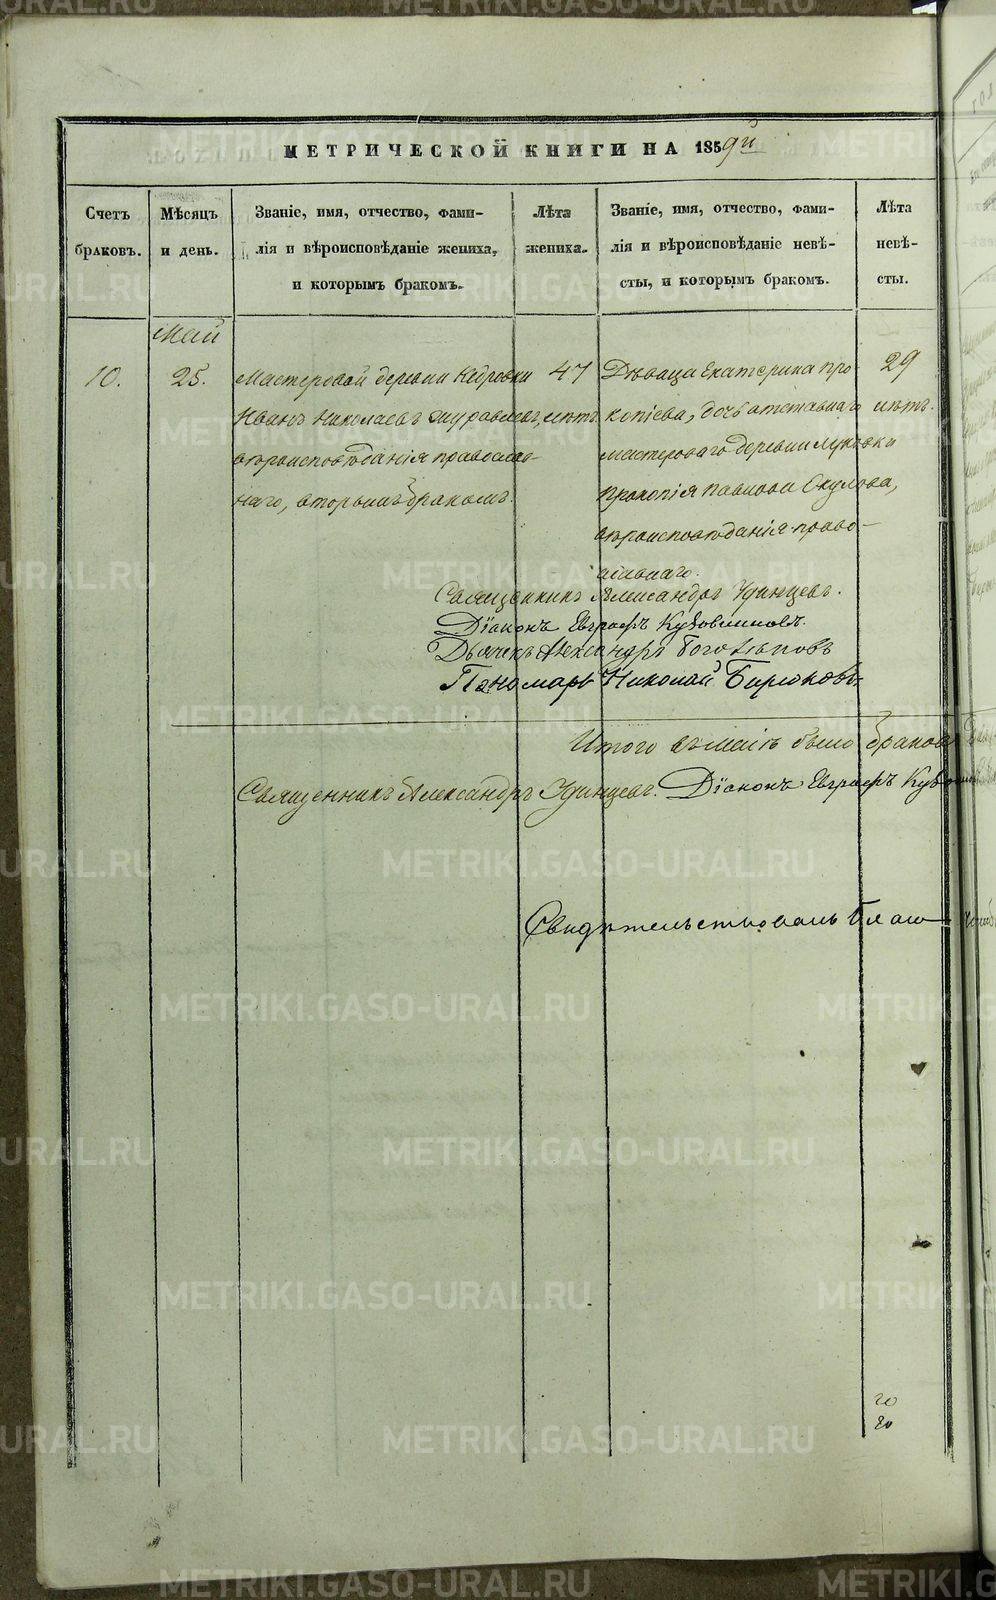 МЕТРИЧЕСКОЙ КНИГИ НА 1859й
Счетъ браковъ.
Мѣсяцъ и день.
Званіе, имя, отчество, фами-
лія и вѣроисповѣданіе жениха,
и которымъ бракомъ.
Лѣта жениха.
Званіе, имя, отчество, фами-
лія и вѣроисповѣданіе невѣ-
сты, и которымъ бракомъ.
Лѣта невѣ-
сты.
Май
10.
25.
Мастеровой деревни Кедровки
Иванъ Николаевъ Журавлевъ,
вѣроисповѣданія православ-
наго, вторымъ бракомъ.
47
лѣтъ
Дѣвица Екатерина Про
копіева, дочь отставнаго
мастероваго деревни
Прокопія Павлова Окулова,
вѣроисповѣданія право-
славнаго.
29
лѣтъ.
Священникъ Александръ Удинцевъ.
Діаконъ Евграфъ Кузовниковъ.
Дьячекъ Александръ Боголѣповъ
Пономарь Николай Бирюковъ
Итого въ маіѣ было браковъ
Священникъ Александръ Удинцевъ. Діаконъ Евграфъ
Свидѣтельствовалъ Благо
20
20
METRIKI.GASO-URAL.RU